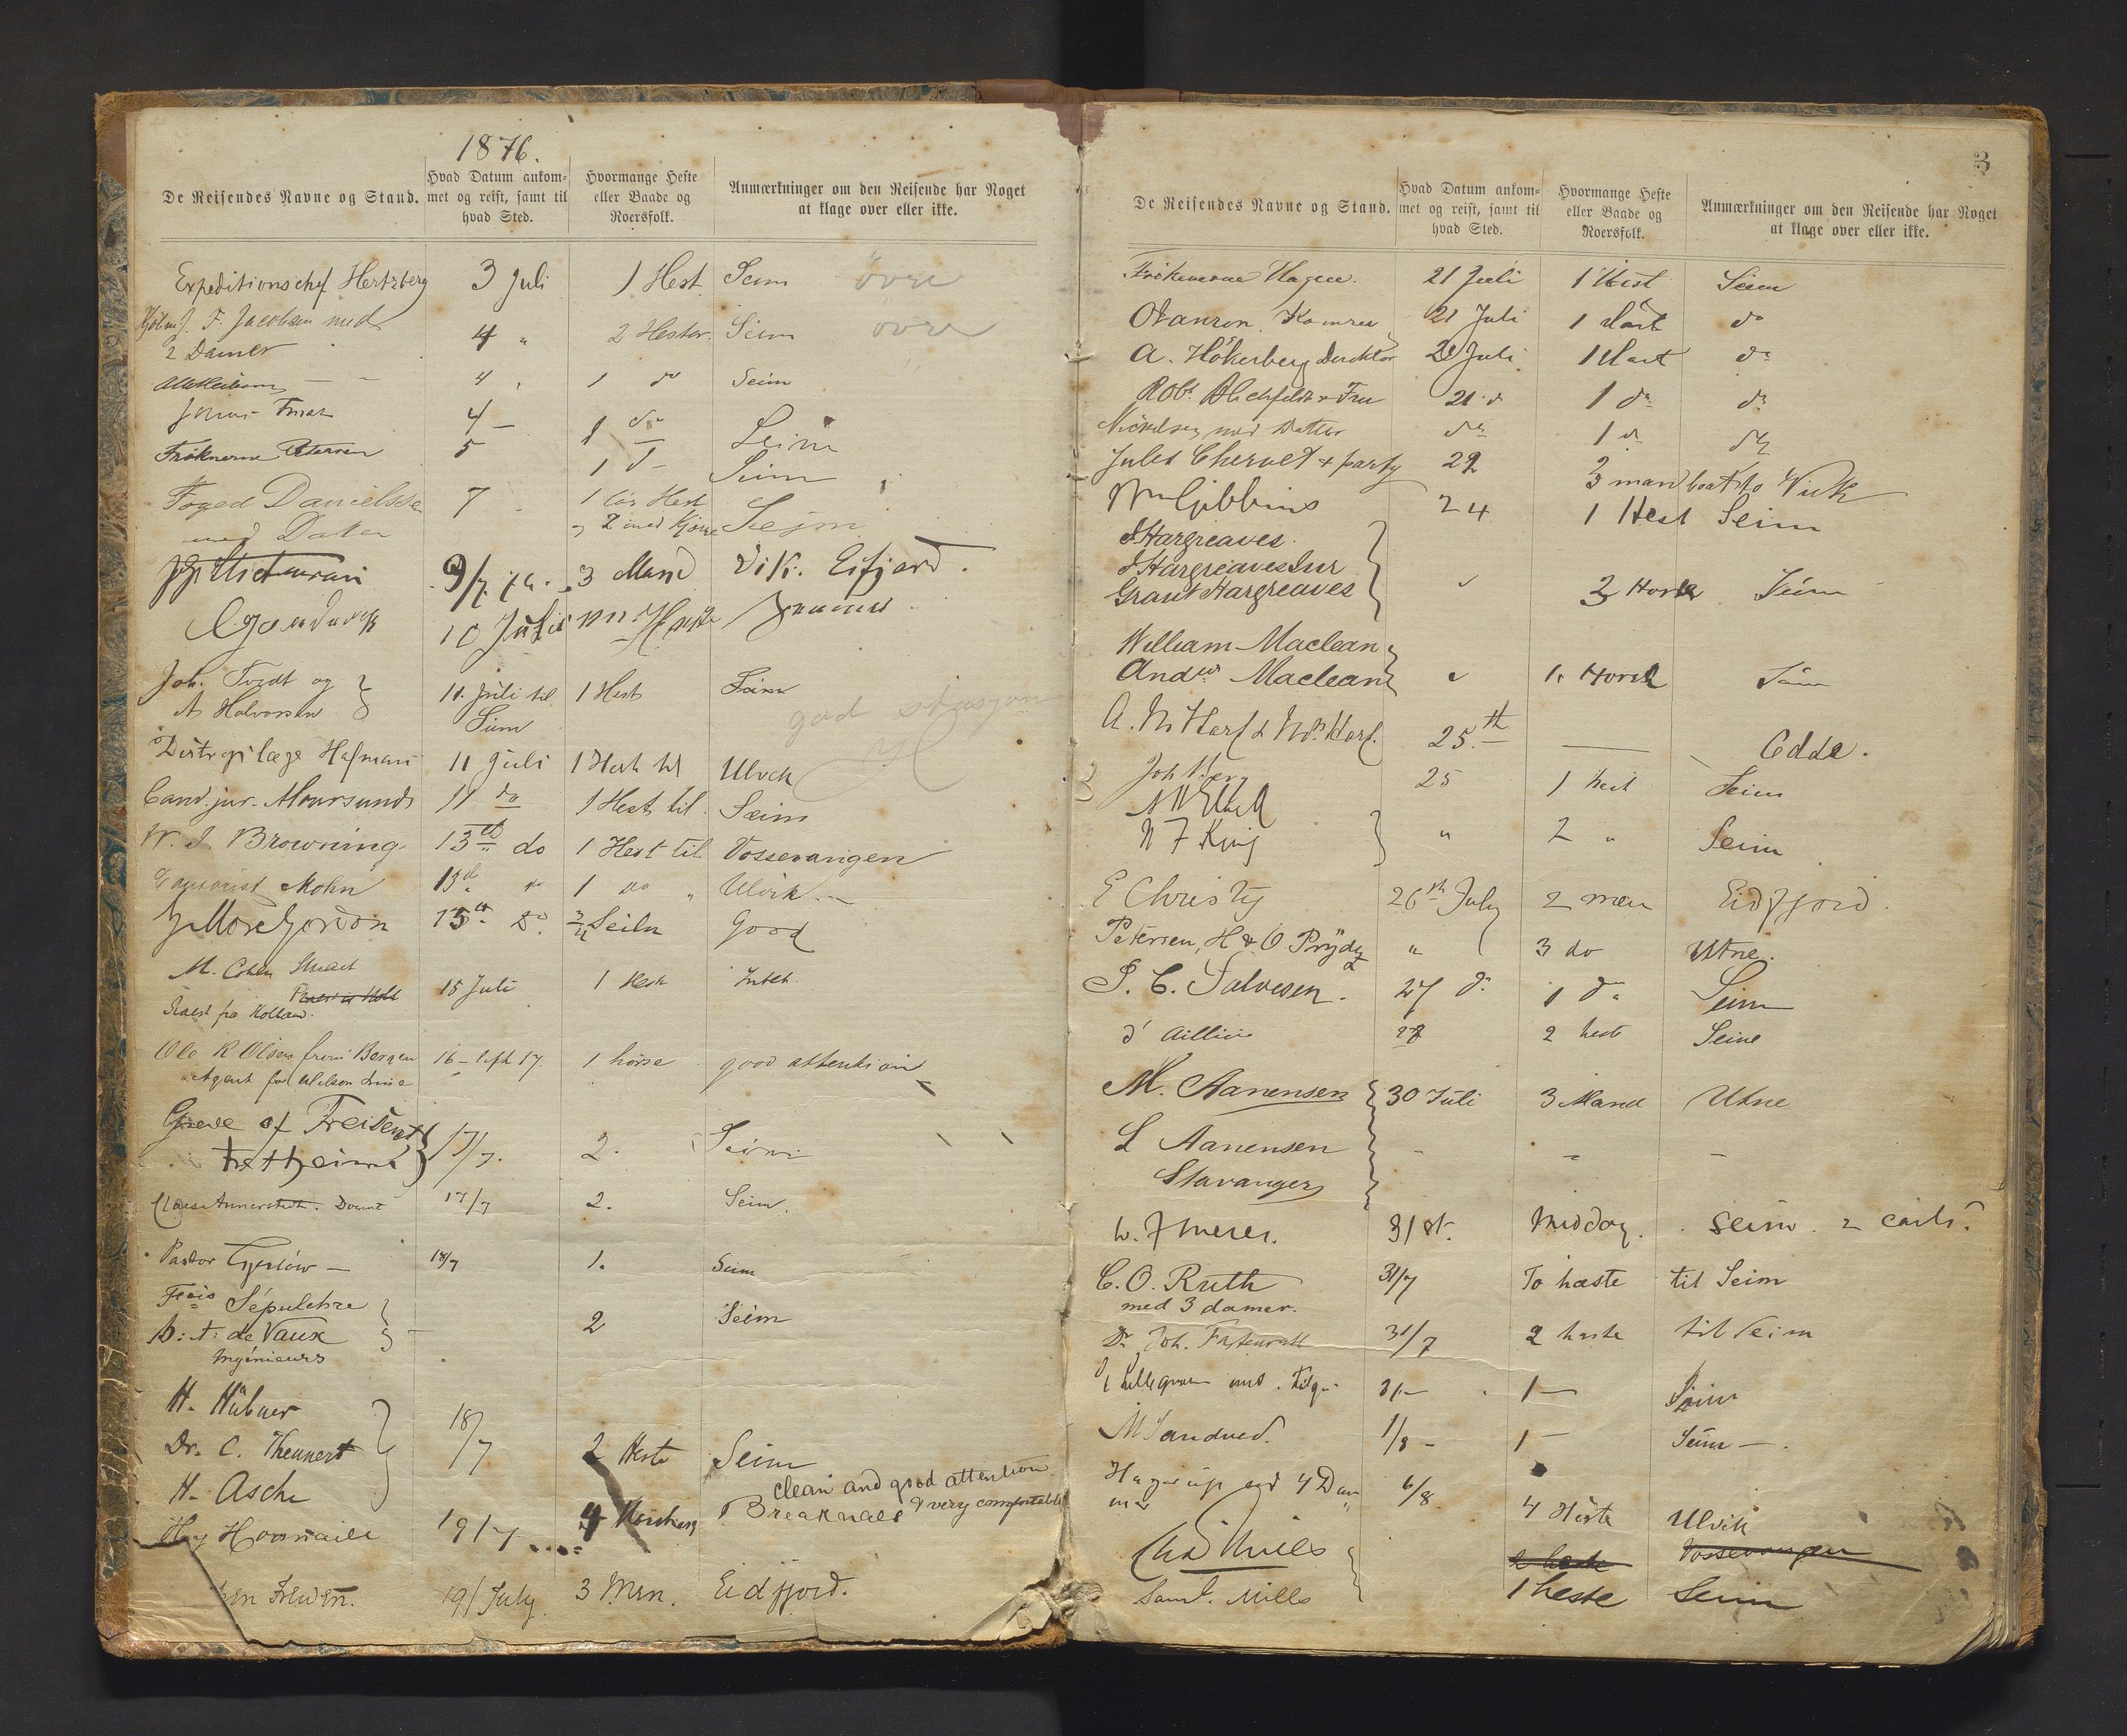 1876.
De Reisendes Navne og Stand.
Hvad Datum ankom-
met og reist, samt til
hvad Sted.
Hvormange Heste
eller Baade og
Roersfolk.
Anmærkninger om den Reisende har Noget
at klage over eller ikke.
Expeditionschef Hertzberg 3 Juli 1 Hest Seim övre
F. Jacobsen med 4 " 2 Hester. Seim övre
2 Damer
4 1 do Seim
4 — 1 do Seim
Frøknerne Petersen 5 1 d— Seim
Foged Danielssen 7 1 løs Hest Seim
med Dater 2 med Kjørre
9/7 3 Mand Vik. Eifjord.
10 Juli
Joh. Tvedt og 11. Juli til 1 Hest Seim
A Halvorsen Seim
god stasjon
Distriktslæge Hofman 11 Juli 1 Hest til Ulvik
Cand. jur. Moursund 11 do 1 Hest til Seim
W. J. Browning 13th do 1 Hest til Vossevangen
Mohn 13d do 1 do " Ulvik
J More Gordon 15th Do. Good
M. Cohen Stuart 15 Juli 1 Hest Intet
Raest fra Holland.
Ole R Olsen from Bergen 16 – left 17. 1 horse good attention
Agent for Wilson Line
Greve of 17/7. 2. Seim
Claes Annerstedt. Docent 17/7 2. Seim.
Pastor 18/7 1. Seim
Fçois Sépulchre
A: t: de Vaux — 2 Seim
Ingénieurs
H. Hübner
Dr. C. Thennert 18/7 2 Heste Seim
H. Asche
clean and good attention
19/7 4 Breaknaes & very comfortable
19/ July 3 Men. Eidfjord.
3
De Reisendes Navne og Stand.
Hvad Datum ankom-
met og reist, samt til
hvad Sted.
Hvormange Heste
eller Baade og
Roersfolk.
Anmærkninger om den Reisende har Noget
at klage over eller ikke.
Frökenerne Hagen. 21 Juli 1 Hest Seim
21 Juli 1 Hest do
A. Hökerberg Direktör 21 Juli 1 Hest do
Robt. Blichfeldt & Fru 21 d 1 do do
Nickelsen med Datter do 1 do do
Jules Chervet & party 22 3 man boat to Vick
Wm Gibbins 24 1 Hest Seim
J Hargreaves.
J Hargreaves Junr
Grant Hargreaves 2 Horse Seim
William Maclean
Andw Maclean 1. Horse Seim
25.th — Odde.
Joh Berg 25 1 hest Seim
W F King " 2 " Seim
E Christy 26th July 2 men Eidfjord.
Petersen, H & O. Prydz " 3 do Utne.
S. C. Salvesen. 27 do 1 do Seim
d'Aillieres 28 2 hest Seime
M. Aanensen 30 Juli 3 Mand Utne
L Aanensen
Stavanger
31st. Middag. Seim. 2 carls.
C. O. Ruth 31/7 To hæste til Seim
med 3 damer.
Dr Joh. Fastenrath 31/7 2 heste til Seim
31— 1— Seim
M Sandved. 1/8 — 1— Seim —.
Hagerup med 4 Da 6/8 4 Heste Ulvik
mer
Chas Mills 2 heste Vossevangen
Saml. Mills 1 heste Seim